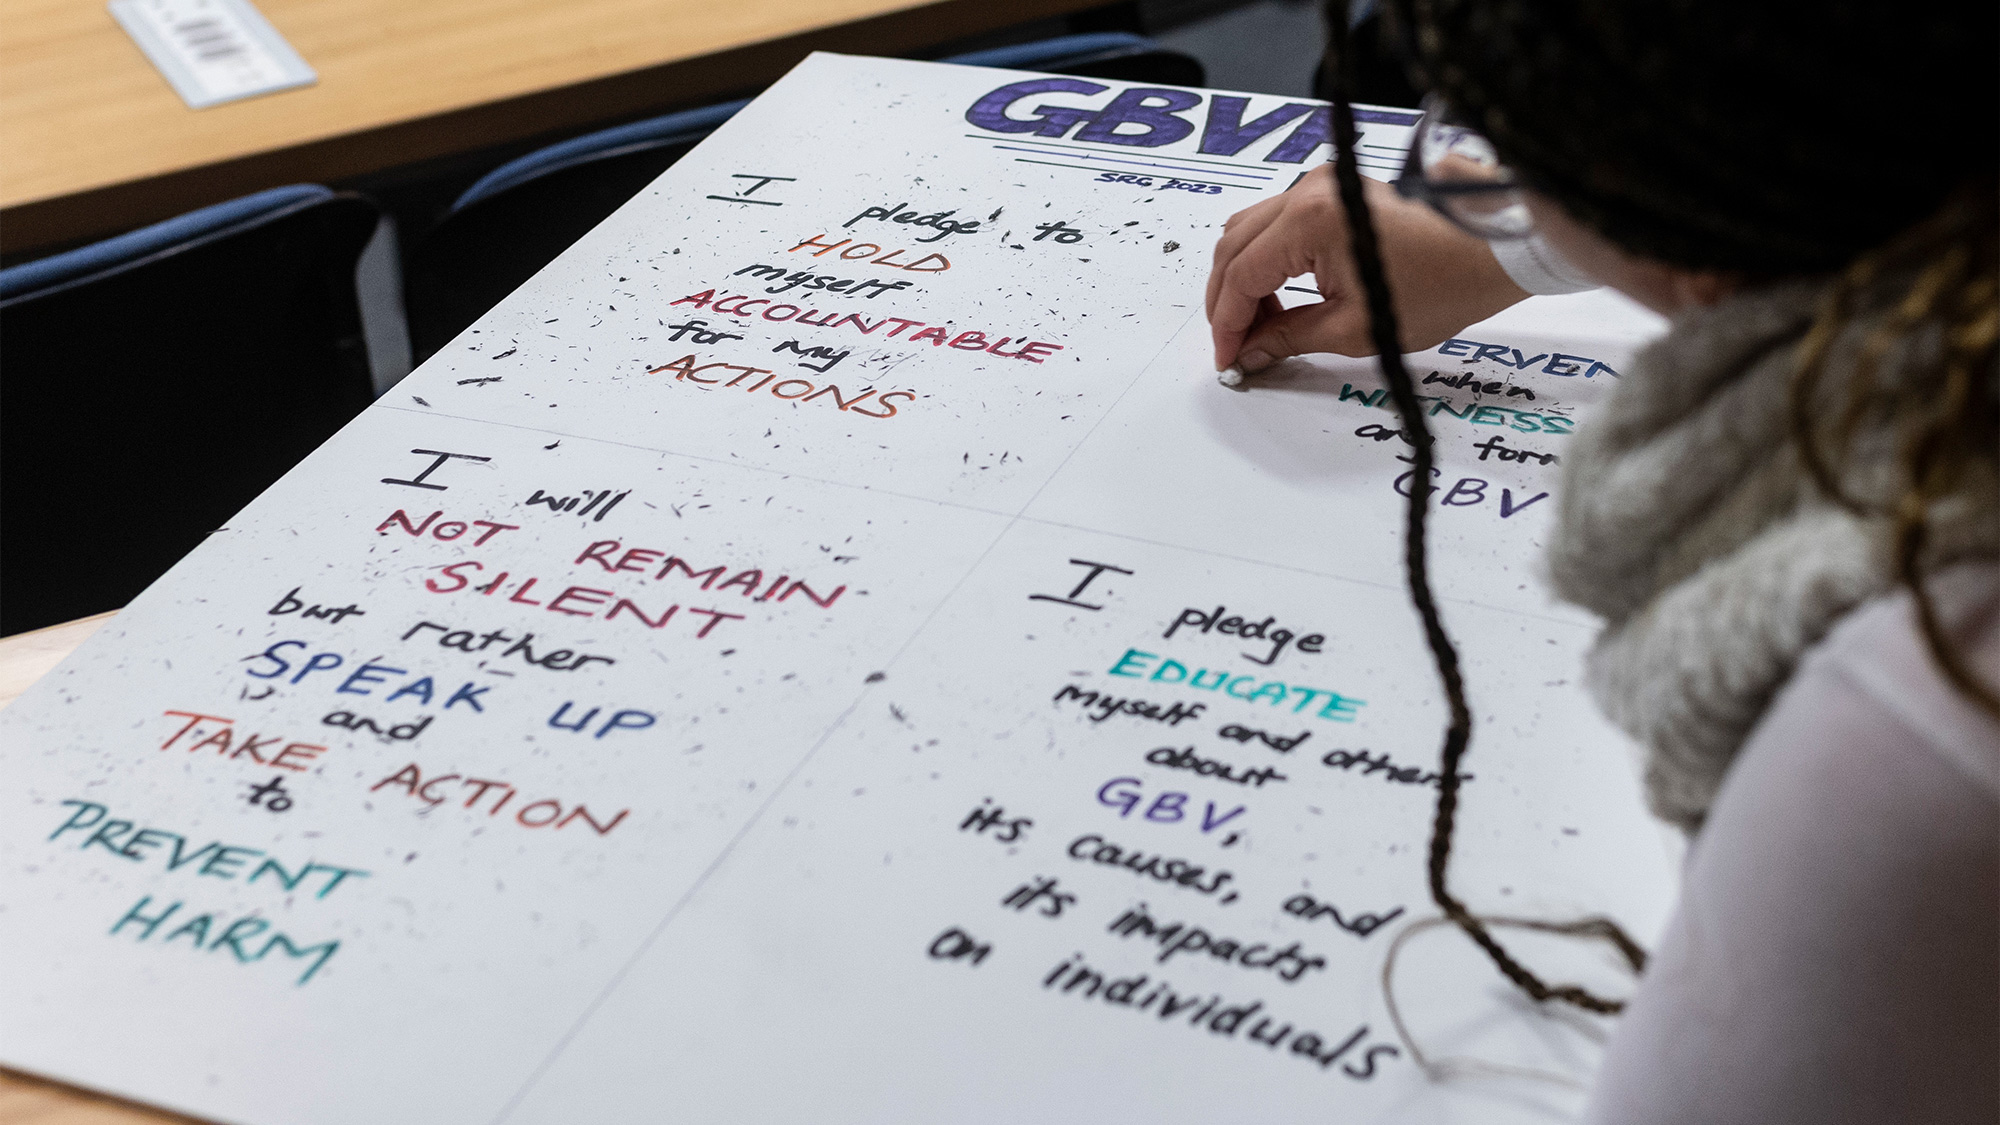 GBVF
SRC 2023
I
pledge to
HOLD
myself
ACCOUNTABLE
for my
ACTIONS
when
WITNESS
any
GBV
I
will
NOT REMAIN
SILENT
but rather
SPEAK UP
and
TAKE ACTION
to
PREVENT
HARM
I
pledge
EDUCATE
myself and others
about
GBV,
its causes, and
its impacts
on individuals